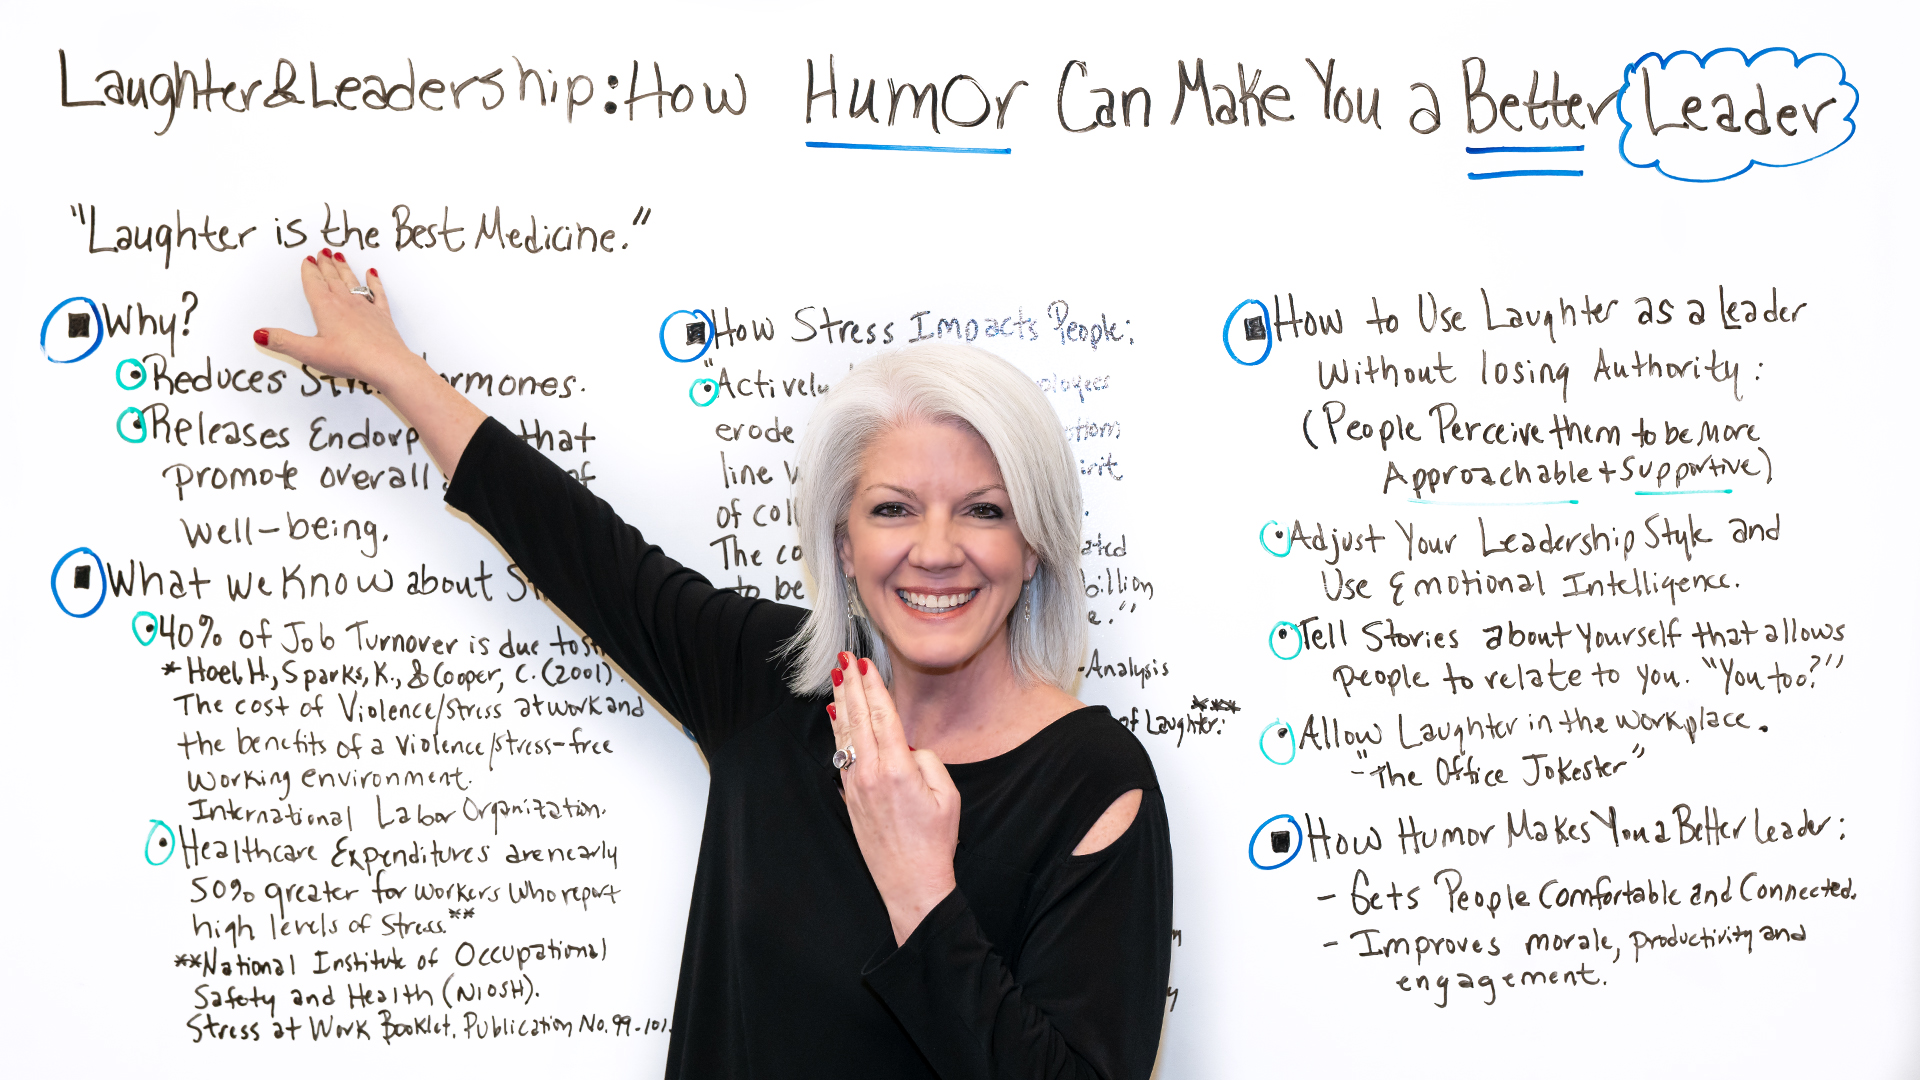 Laughter & Leadership: How Humor Can Make You a Better Leader
"Laughter is the Best Medicine."
Why?
Reduces Stress Hormones.
Releases that
promote overall of
well-being.
What we Know about
40% of Job Turnover is due to
* Hoel, H., Sparks, K., & Cooper, C. (2001).
The cost of Violence/stress at work and
the benefits of a violence/stress-free
working environment.
International Labor Organization.
Healthcare Expenditures are nearly
50% greater for workers who report
high levels of Stress.**
**National Institute of Occupational
Safety and Health (NIOSH).
Stress at Work Booklet. Publication No. 99-101.
How Stress Impacts People:
"Actively
erode
line
of
The
to be billion
-Analysis
of Laughter:****
How to Use Laughter as a Leader
Without losing Authority:
(People Perceive them to be More
Approachable + Supportive)
Adjust Your Leadership Style and
Use Emotional Intelligence.
Tell Stories about yourself that allows
people to relate to you. "You too?"
Allow Laughter in the workplace.
-"The Office Jokester"
How Humor Makes You a Better Leader:
- Gets People Comfortable and Connected.
- Improves morale, productivity and
engagement.